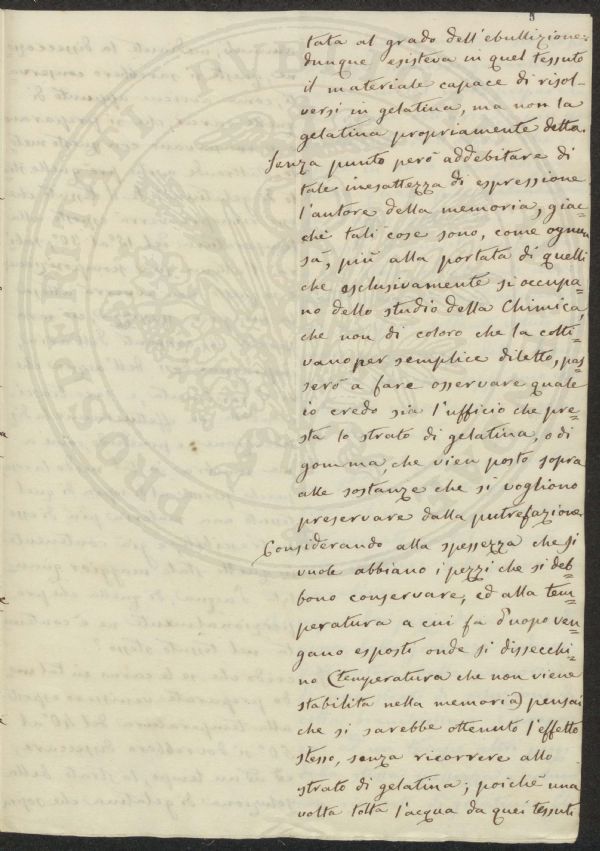 5
tata al grado dell'ebullizione:
dunque esisteva in quel tessuto
il materiale capace di risol-
versi in gelatina, ma non la
gelatina propriamente detta.
Senza punto però addebitare di
tale inesattezza di espressione
l'autore della memoria, giac-
chè tali cose sono, come ognun
sà, più alla portata di quelli
che esclusivamente si occupa=
no dello studio della Chimica,
che non di coloro che la colti-
vano per semplice diletto, pas=
serò a fare osservare quale
io credo sia l'ufficio che pre=
sta lo strato di gelatina, o di
gomma, che vien posto sopra
alle sostanze che si vogliono
preservare dalla putrefazione.
Considerando alla spessezza che si
vuole abbiano i pezzi che si deb=
bono conservare, ed alla tem=
peratura a cui fa d'uopo ven=
gano esposti onde si dissecchi=
no (temperatura che non viene
stabilita nella memoria) pensai
che si sarebbe ottenuto l'effetto
stesso, senza ricorrere allo
strato di gelatina; poichè una
volta tolta l'acqua da quei tessuti
PROSPERITATI PVBLICAE